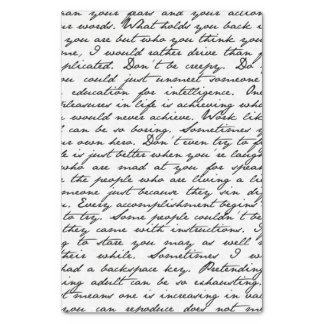 than your fears and your action
r words. What holds you back i
you are but who you think you
me, I would rather drive than f
plicated. Don't be creepy. Do
ou could just unmeet someone
education for intelligence. One
pleasures in life is achieving wha
would never achieve. Work like
l can be so boring. Sometimes y
ur own hero. Don't even try to f
e is just better when you're laugh
who are mad at you for spea
the people who are living a li
meone just because they sin dif
u. Every accomplishment begins
to try. Some people couldn't be
they came with instructions. I
g to stare you may as well
their while. Sometimes I w
had a backspace key. Pretending
ing adult can be so exhausting.
t means one is increasing in va
you can reproduce does not me